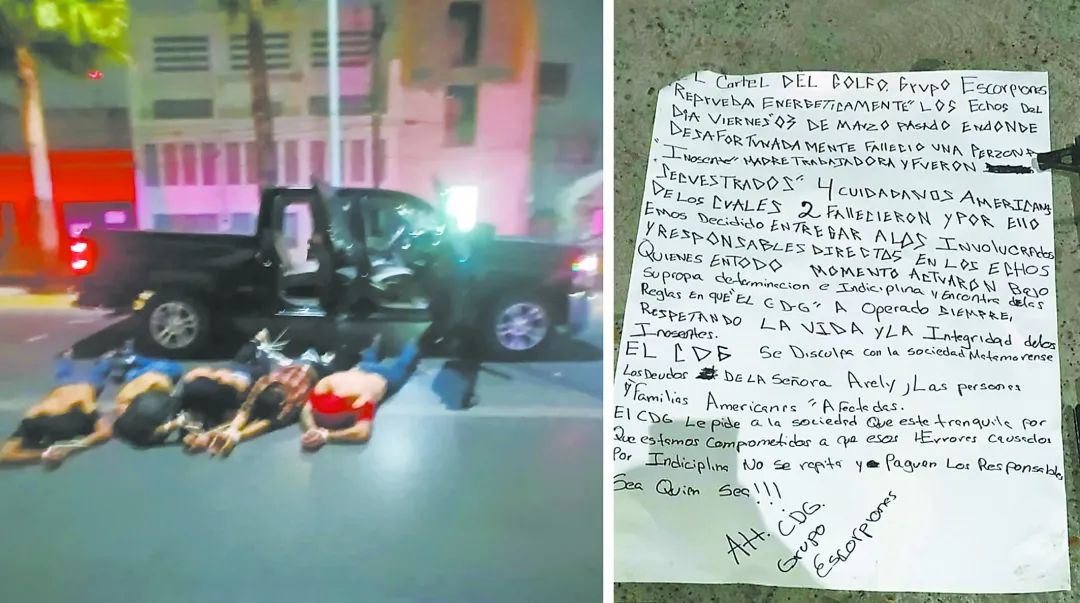 EL CARTEL DEL GOLFO. GRUPO ESCORPIONES
REPRUEBA ENERGETICAMENTE" LOS ECHOS DEL
DIA VIERNES" 03 DE MARZO PASADO ENDONDE
DESAFORTUNADAMENTE FALLECIO UNA PERZONA
"INOSENTE" MADRE TRABAJADORA Y FUERON
"SECVESTRADOS" 4 CUIDADANOS AMERICANOS
DE LOS CVALES 2 FALLECIERON Y POR ELLO
EMOS DECIDIDO ENTREGAR A LOS INVOLUCRADOS
Y RESPONSABLES DIRECTOS EN LOS ECHOS
QUIENES EN TODO MOMENTO ACTVARON BAJO
SU PROPIA determinacion e Indiciplina y Encontra de las
Reglas EN QUE "EL CDG" A OPERADO SIEMPRE,
RESPETANDO LA VIDA Y LA Integridad de los
Inosentes.
EL CDG Se Disculpa con la sociedad Matamorense
Los Deudos DE LA SEÑORA Arely, Las personas
y "Familias Americanes" Afectadas.
El CDG Le pide a la sociedad Que este tranquila por
Que estamos Comprometidos a que esos "Errores causados
Por Indiciplina No se repita y Paguen Los Responsables
Sea Quien Sea!!!
Att. CDG.
Grupo
Escorpiones